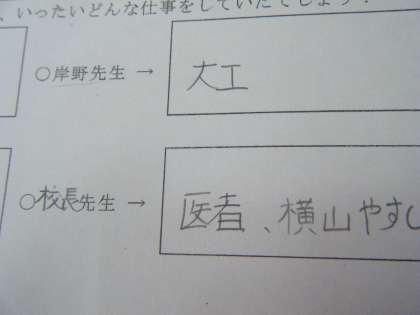 、いったいどんな仕事をしていたでしょう？
○岸野先生 → 大工
○校長先生 → 医者、横山やすし